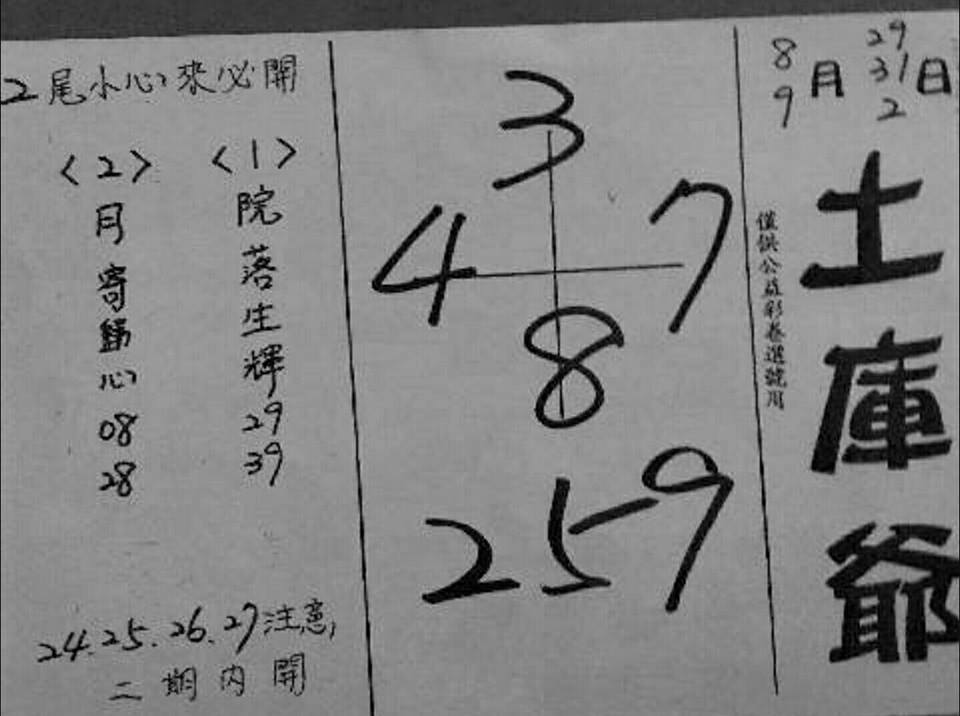 8 月 29 31 日
9 2
土庫爺
僅供公益彩卷選號用
3
4 7
8
259
2尾小心來必開
<1>
院落生輝
29
39
<2>
月寄歸心
08
28
24.25.26.27注意,
二期內開